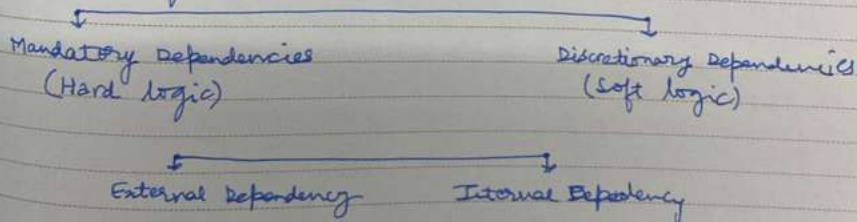 Mandatory Dependencies Discretionary Dependencies
(Hard logic) (Soft logic)
External Dependency Internal Depedency